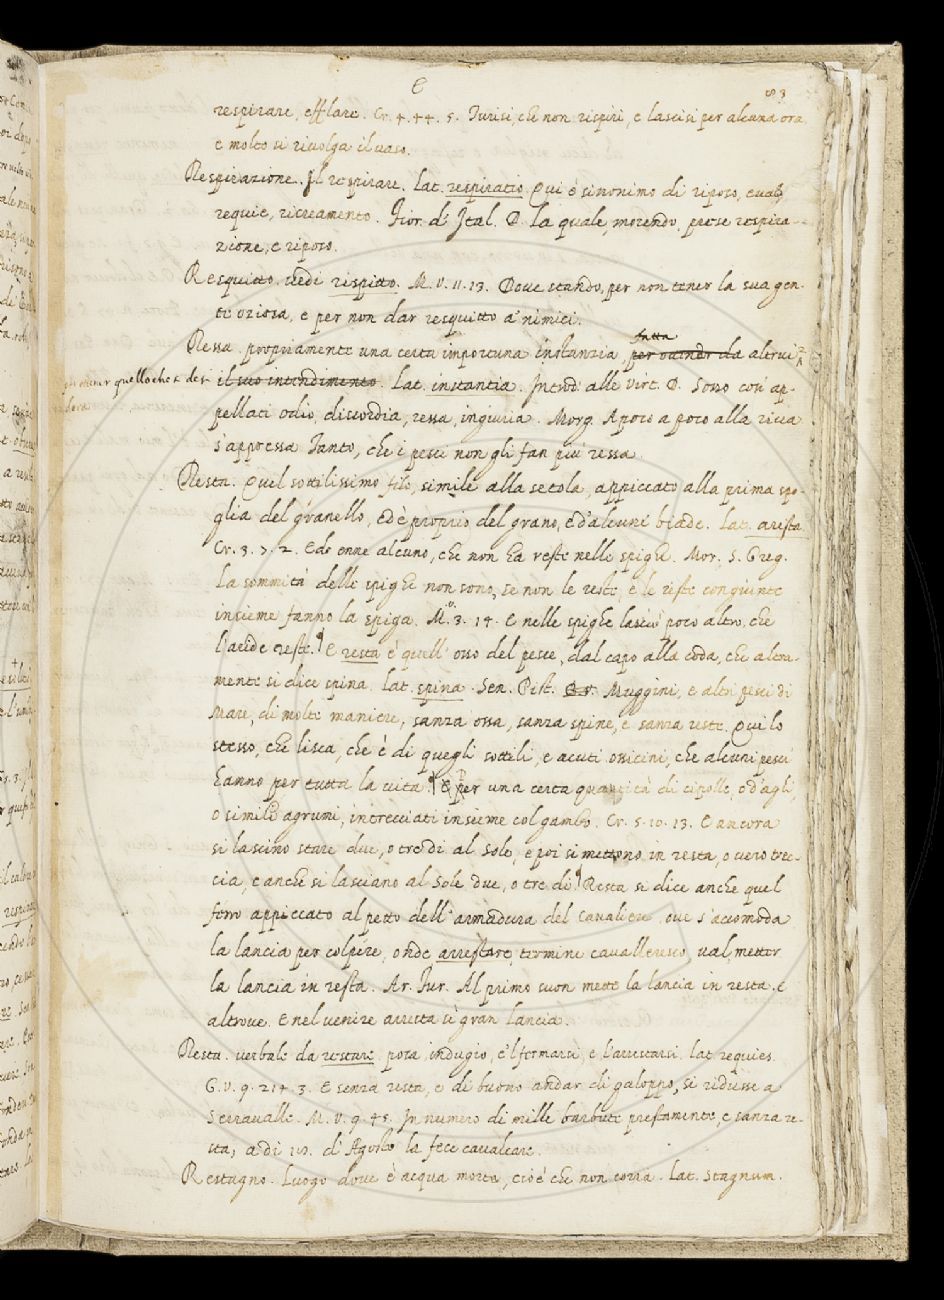 E
83
respirare, efflare. Cr. 4. 44. 5. Turisi, che non rispiri, e lascisi per alcuna ora,
e molto si rivolga il vaso.
Respirazione. Il respirare. Lat. respiratio. Qui è sinonimo di riposo, e val,
requie, ricreamento. Fior. d' Ital. D. La quale, morendo, perse respira-
zione, e riposo.
Resquitto. vedi rispitto. M. V. 11. 13. Dove stando, per non tener la sua gen-
te oziosa, e per non dar resquitto a' nimici.
Ressa. propriamente una certa importuna instanzia, fatta per altrui
per ottener quello che e' desi-
dera
il suo intendimento. Lat. instantia. Introd. alle Virt. D. Sono così ap-
pellati odio, discordia, ressa, ingiuria. Morg. A poco a poco alla riva
s'appressa Tanto, che i pesci non gli fan più ressa.
Resta. Quel sottilissimo filo, simile alla setola, appiccato alla prima spo-
glia del granello, ed è proprio del grano, e d'alcune biade. Lat. arista
Cr. 3. 7. 2. Ed enne alcuno, che non ha reste nelle spighe. Mor. S. Greg.
La sommità delle spighe non sono, se non le reste, e le reste congiunte
insieme fanno la spiga. M. V. 3. 14. E nelle spighe lasciò poco altro, che
l'aride reste. E resta è quell' osso del pesce, dal capo alla coda, che altra-
mente si dice spina. Lat. spina. Sen. Pist. Muggini, e altri pesci di
Mare, di molte maniere, sanza ossa, sanza spine, e sanza reste. Qui lo
stesso, che lisca, che è di quegli sottili, e acuti ossicini, che alcuni pesci
hanno per tutta la vita. E per una certa quantità di cipolle, o d'agli,
o simili agrumi, intrecciati insieme col gambo. Cr. 5. 10. 13. E ancora
si lascino stare due, o tre dì al Sole, e poi si mettono in resta, o vero trec-
cia, e anche si lasciano al Sole due, o tre dì. Resta si dice anche quel
ferro appiccato al petto dell' armadura del Cavaliere, ove s'accomoda
la lancia per colpire, onde arrestare, termine cavalleresco, val, metter
la lancia in resta. Ar. Fur. Al primo suon mette la lancia in resta. E
altrove. E nel venire arresta sì gran lancia.
Resta. verbale da restare. posa, indugio, e 'l fermarsi, e l'arrestarsi. Lat. requies.
G. V. 9. 214. 3. E senza resta, e di buono andar di galoppo, si ridusse a
Serravalle. M. V. 9. 45. In numero di mille barbute prestamente, e sanza re-
sta, a dì d' Agosto la fece cavalcare.
Restagno. Luogo dove è acqua morta, cioè che non corra. Lat. Stagnum.